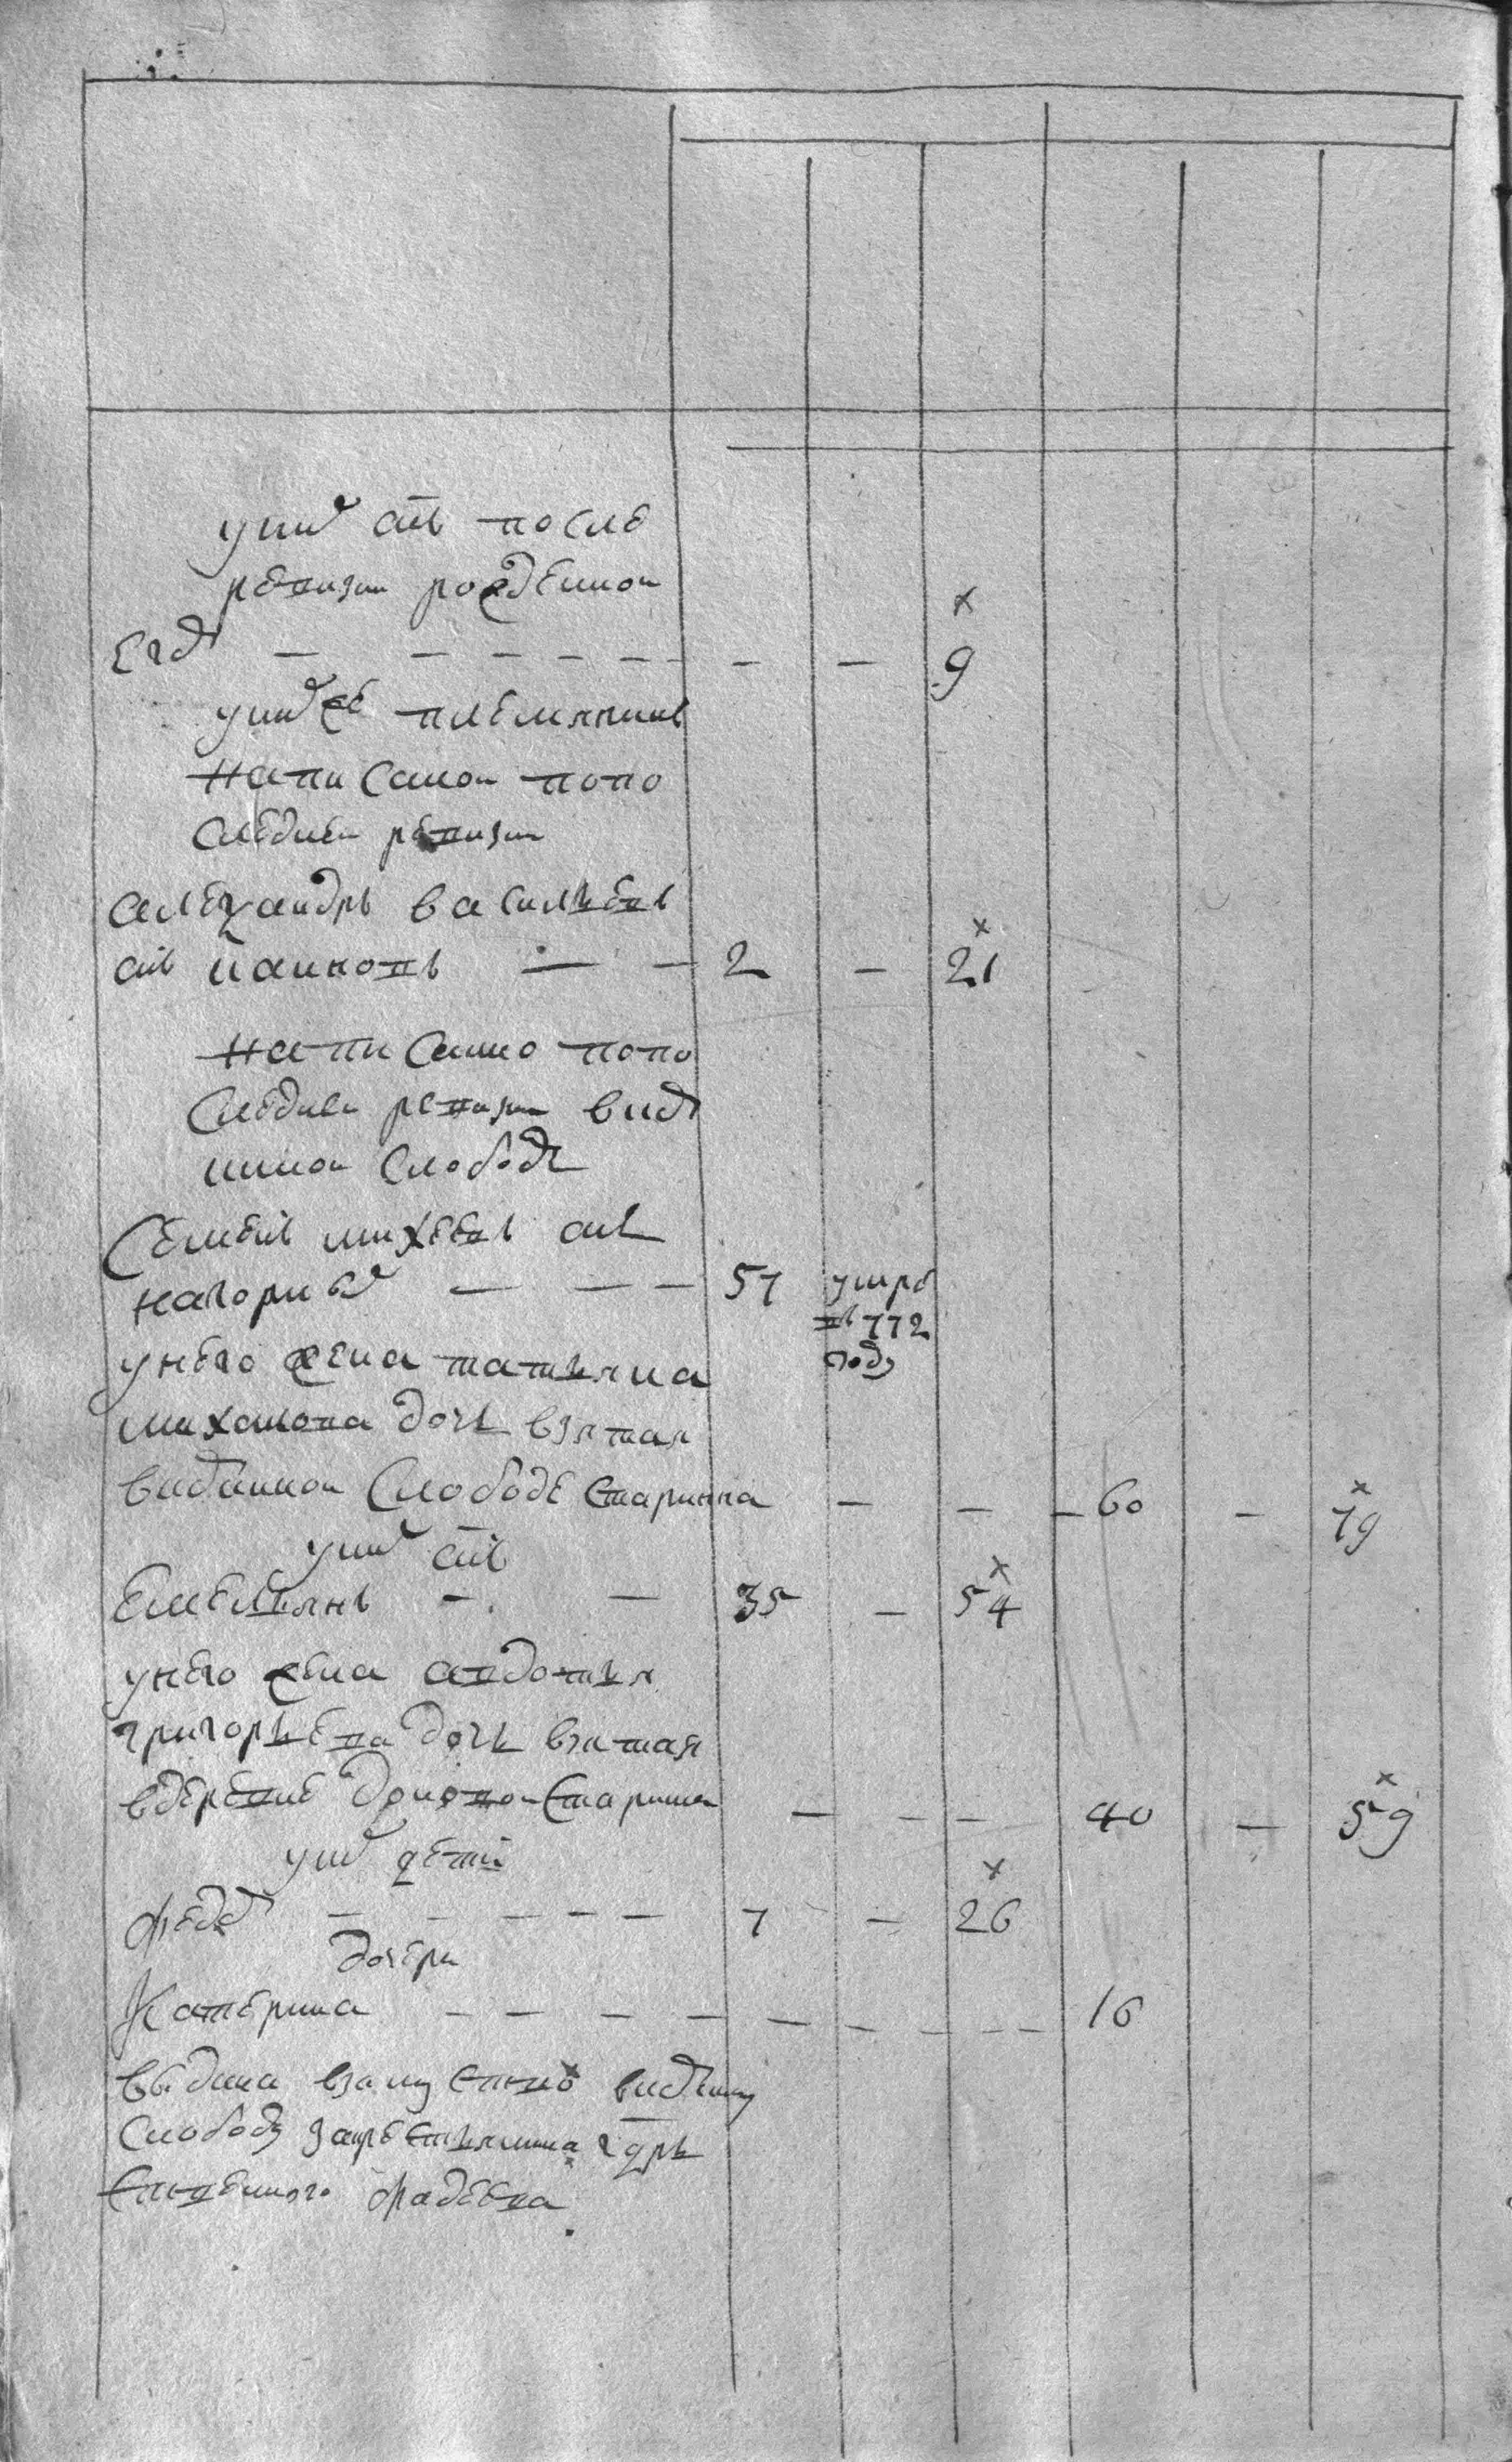 у них снъ после
ревизии рожденнои
Егор — — — — — — — — 9
у них же племянникъ
написанои по по
следней ревизии
александръ васильевъ
снъ — — 2 — 21
написано по по
следней ревизии в
слободе
Семенъ михеевъ снъ
— — — 57 умре
въ 772
году
у него жена татьяна
михаилова дочь взятая
в слободе старинна — — — 60 — 79
у них снъ
Емельянъ — — 35 — 54
у него жена авдотья
григорьева дочь взятая
в деревне старинна — — — 40 — 59
у них дети
федор — — — — — 7 — 26
дочери
Катерина — — — — — — — — — 16
выдана в замужство в
слободу за крестьянина гдрь
фадеева